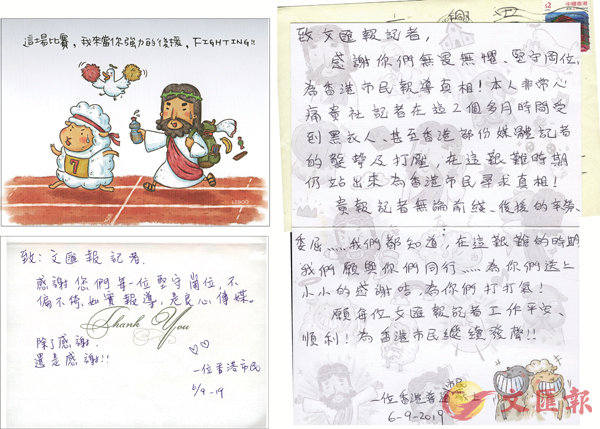 這場比賽,我來當你強力的後援,FIGHTING!!
7
LEBOO
致:文匯報記者.
感謝您們每一位堅守崗位,不
偏不倚,如實報導,是良心傳媒。
Thank You
除了感謝,
還是感謝!!
一位香港市民
6/9-19
$2
致文匯報記者,
感謝你們無畏無懼、堅守岡位,
為香港市民報導真相!本人非常心
痛貴社記者在這2個多月時間受
到黑衣人、甚至香港部份媒體記者
的襲擊及打壓,在這艱難時期
仍站出來為香港市民尋求真相!
貴報記者無論前綫、後援的辛勞、
委屈.....我們都知道,在這艱難的時期
我們願與你們同行.....為你們送上
小小的感謝咭,為你們打打氣!
願每位文匯報記者工作平安、
順利!為香港市民繼續發聲!!
一位香港普通市民 上
6-9-2019
文匯報